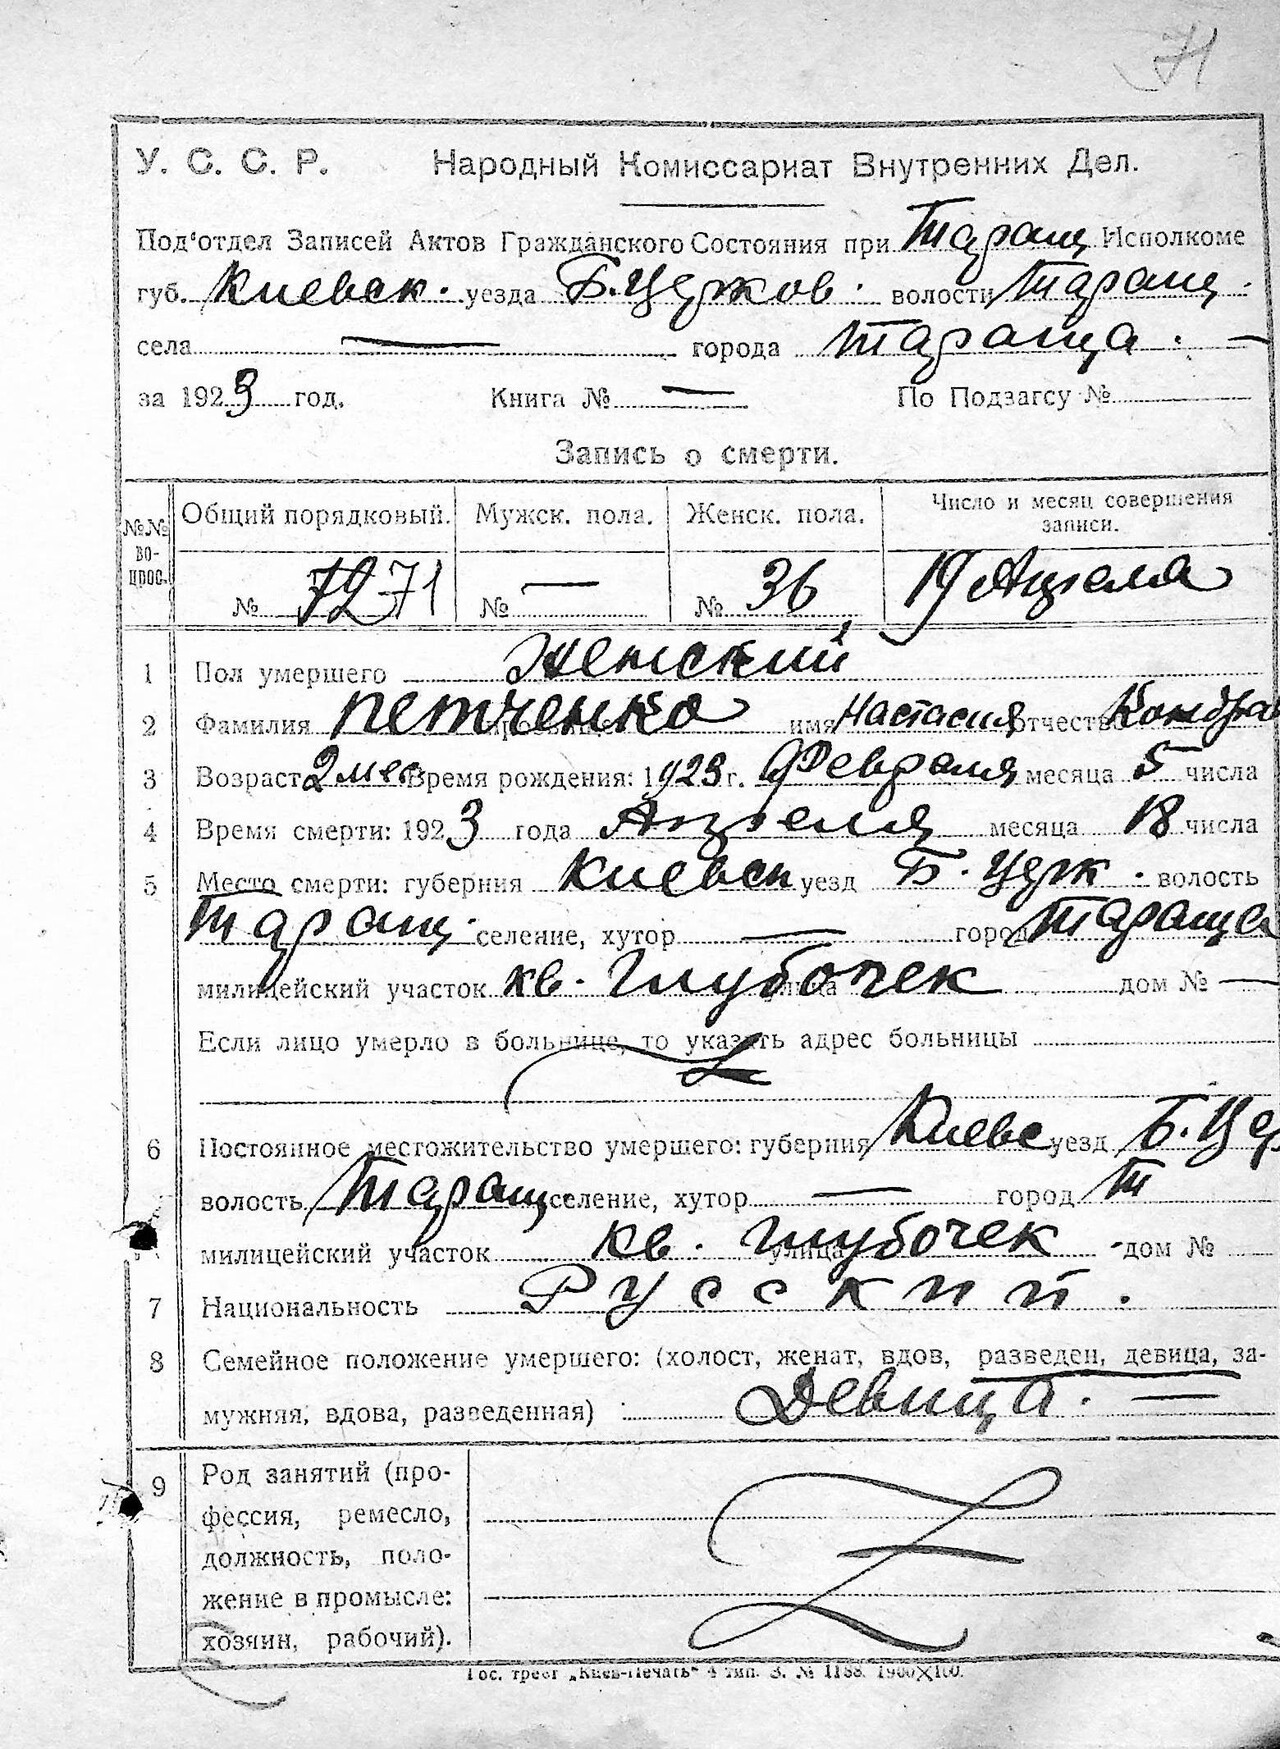 71
У. С. С. Р. Народный Комиссариат Внутренних Дел.
Под'отдел Записей Актов Гражданского Состояния при Таращ. Исполкоме
губ. Киевск. уезда Б. Церков. волости Таращ.
села — города Тараща. —
за 1923 год. Книга № — По Подзагсу №
Запись о смерти.
№№ вопрос. Общий порядковый. Мужск. пола. Женск. пола. Число и месяц совершения записи.
№ 72 71 № — № 36 19 Апреля
1 Пол умершего Женский
2 Фамилия Петченко имя Настасия отчество Кондра
3 Возраст 2 мес Время рождения: 1923 г. Февраля месяца 5 числа
4 Время смерти: 1923 года Апреля месяца 18 числа
5 Место смерти: губерния Киевск уезд Б. Церк. волость
Таращ. селение, хутор — город Тараща
милицейский участок кв. Глубочек улица дом № —
Если лицо умерло в больнице, то указать адрес больницы
6 Постоянное местожительство умершего: губерния Киевс уезд Б. Цер
волость Таращ селение, хутор — город Т
милицейский участок кв. Глубочек улица дом №
7 Национальность Русский.
8 Семейное положение умершего: (холост, женат, вдов, разведен, девица, за-
мужняя, вдова, разведенная) Девица. —
9 Род занятий (про-
фессия, ремесло,
должность, поло-
жение в промысле:
хозяин, рабочий).
Гос. трест „Киев-Печать" 4 тип. З. № 1188. 1900×100.